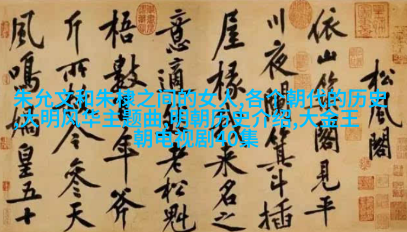 松風閣
依山築閣見平
川夜闌箕斗插
屋椽我來名之
意適然老松魁
梧數百年斧
斤所赦今參天
風鳴媧皇五十
朱允文和朱棣之间的女人,各个朝代的历史
,大明风华主题曲,明朝历史介绍,大金王
朝电视剧40集